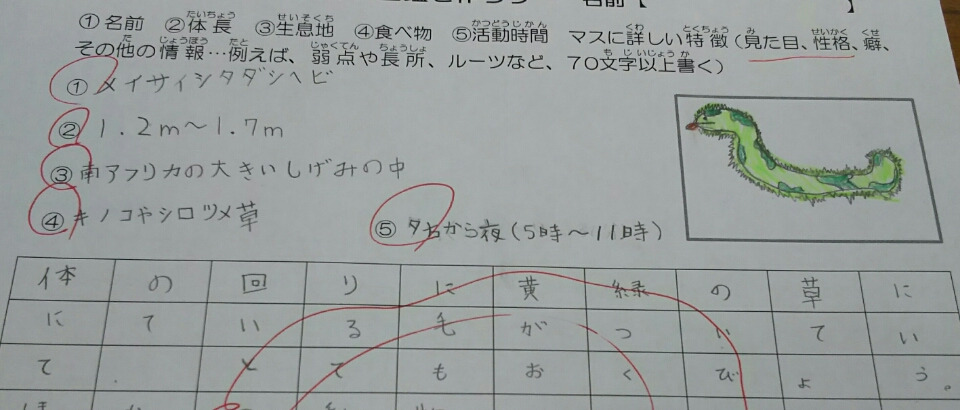 名前【 】
①名前 ②体長 ③生息地 ④食べ物 ⑤活動時間 マスに詳しい特徴(見た目、性格、癖、
その他の情報…例えば、弱点や長所、ルーツなど、70文字以上書く)
①メイサイシタダシヘビ
②1.2m～1.7m
③南アフリカの大きいしげみの中
④キノコやシロツメ草
⑤夕方から夜(5時～11時)
体の回りに黄緑の草に
にている毛がついてい
て、とてもおくびょう。